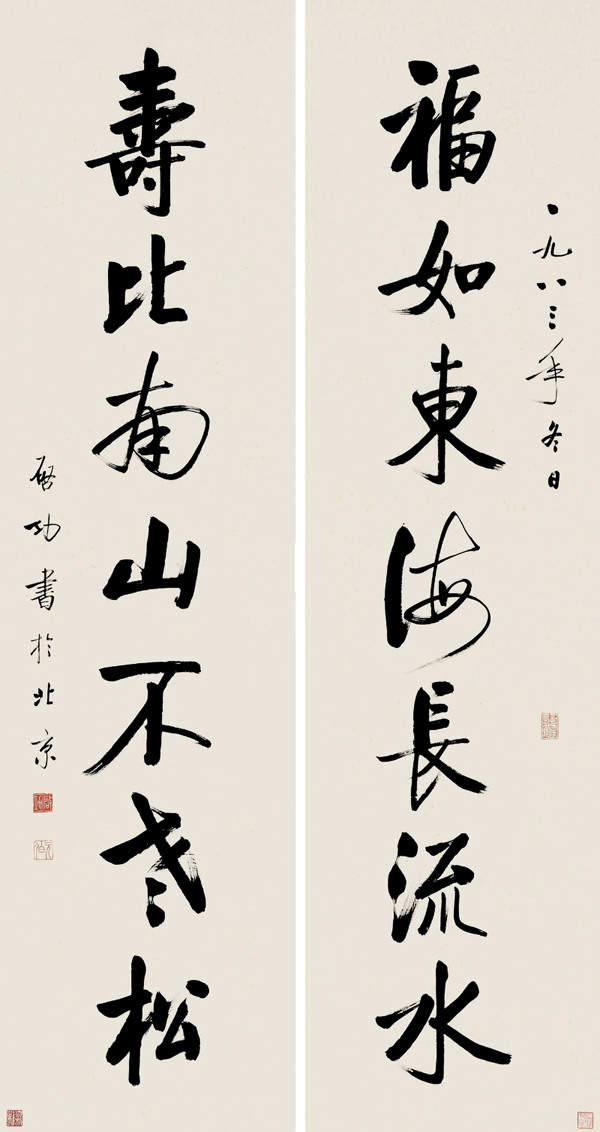 一九八三年冬日
福如東海長流水
壽比南山不老松
啟功書於北京